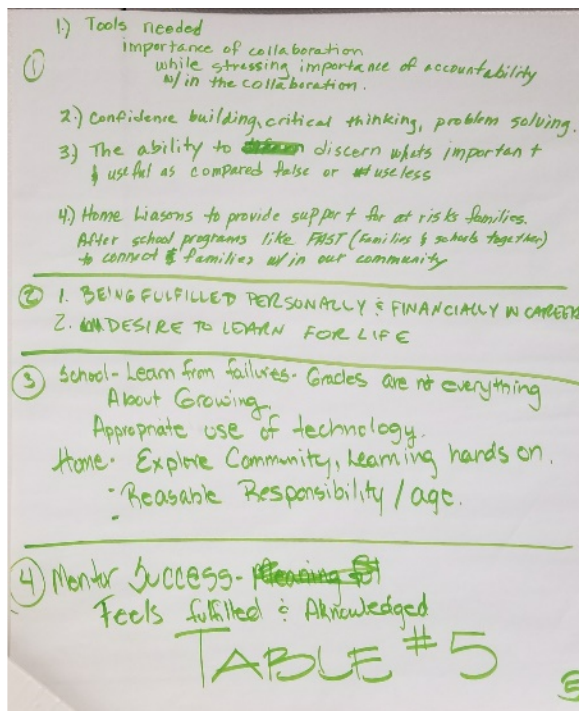 1.) Tools needed
importance of collaboration
① while stressing importance of accountability
w/in the collaboration.
2.) Confidence building, critical thinking, problem solving.
3.) The ability to discern whats important
& useful as compared false or useless
4.) Home Liasons to provide support for at risks families.
After school programs like FAST (families & schools together)
to connect families w/in our community
② 1. BEING FULFILLED PERSONALLY & FINANCIALLY IN CAREER
2. DESIRE TO LEARN FOR LIFE
③ School- Learn from failures- Grades are not everything
About Growing.
Appropriate use of technology.
Home- Explore Community, Learning hands on.
- Reasable Responsibility / age.
-
④ Mentor Success-
Feels fulfilled & Aknowledged
TABLE #5
5